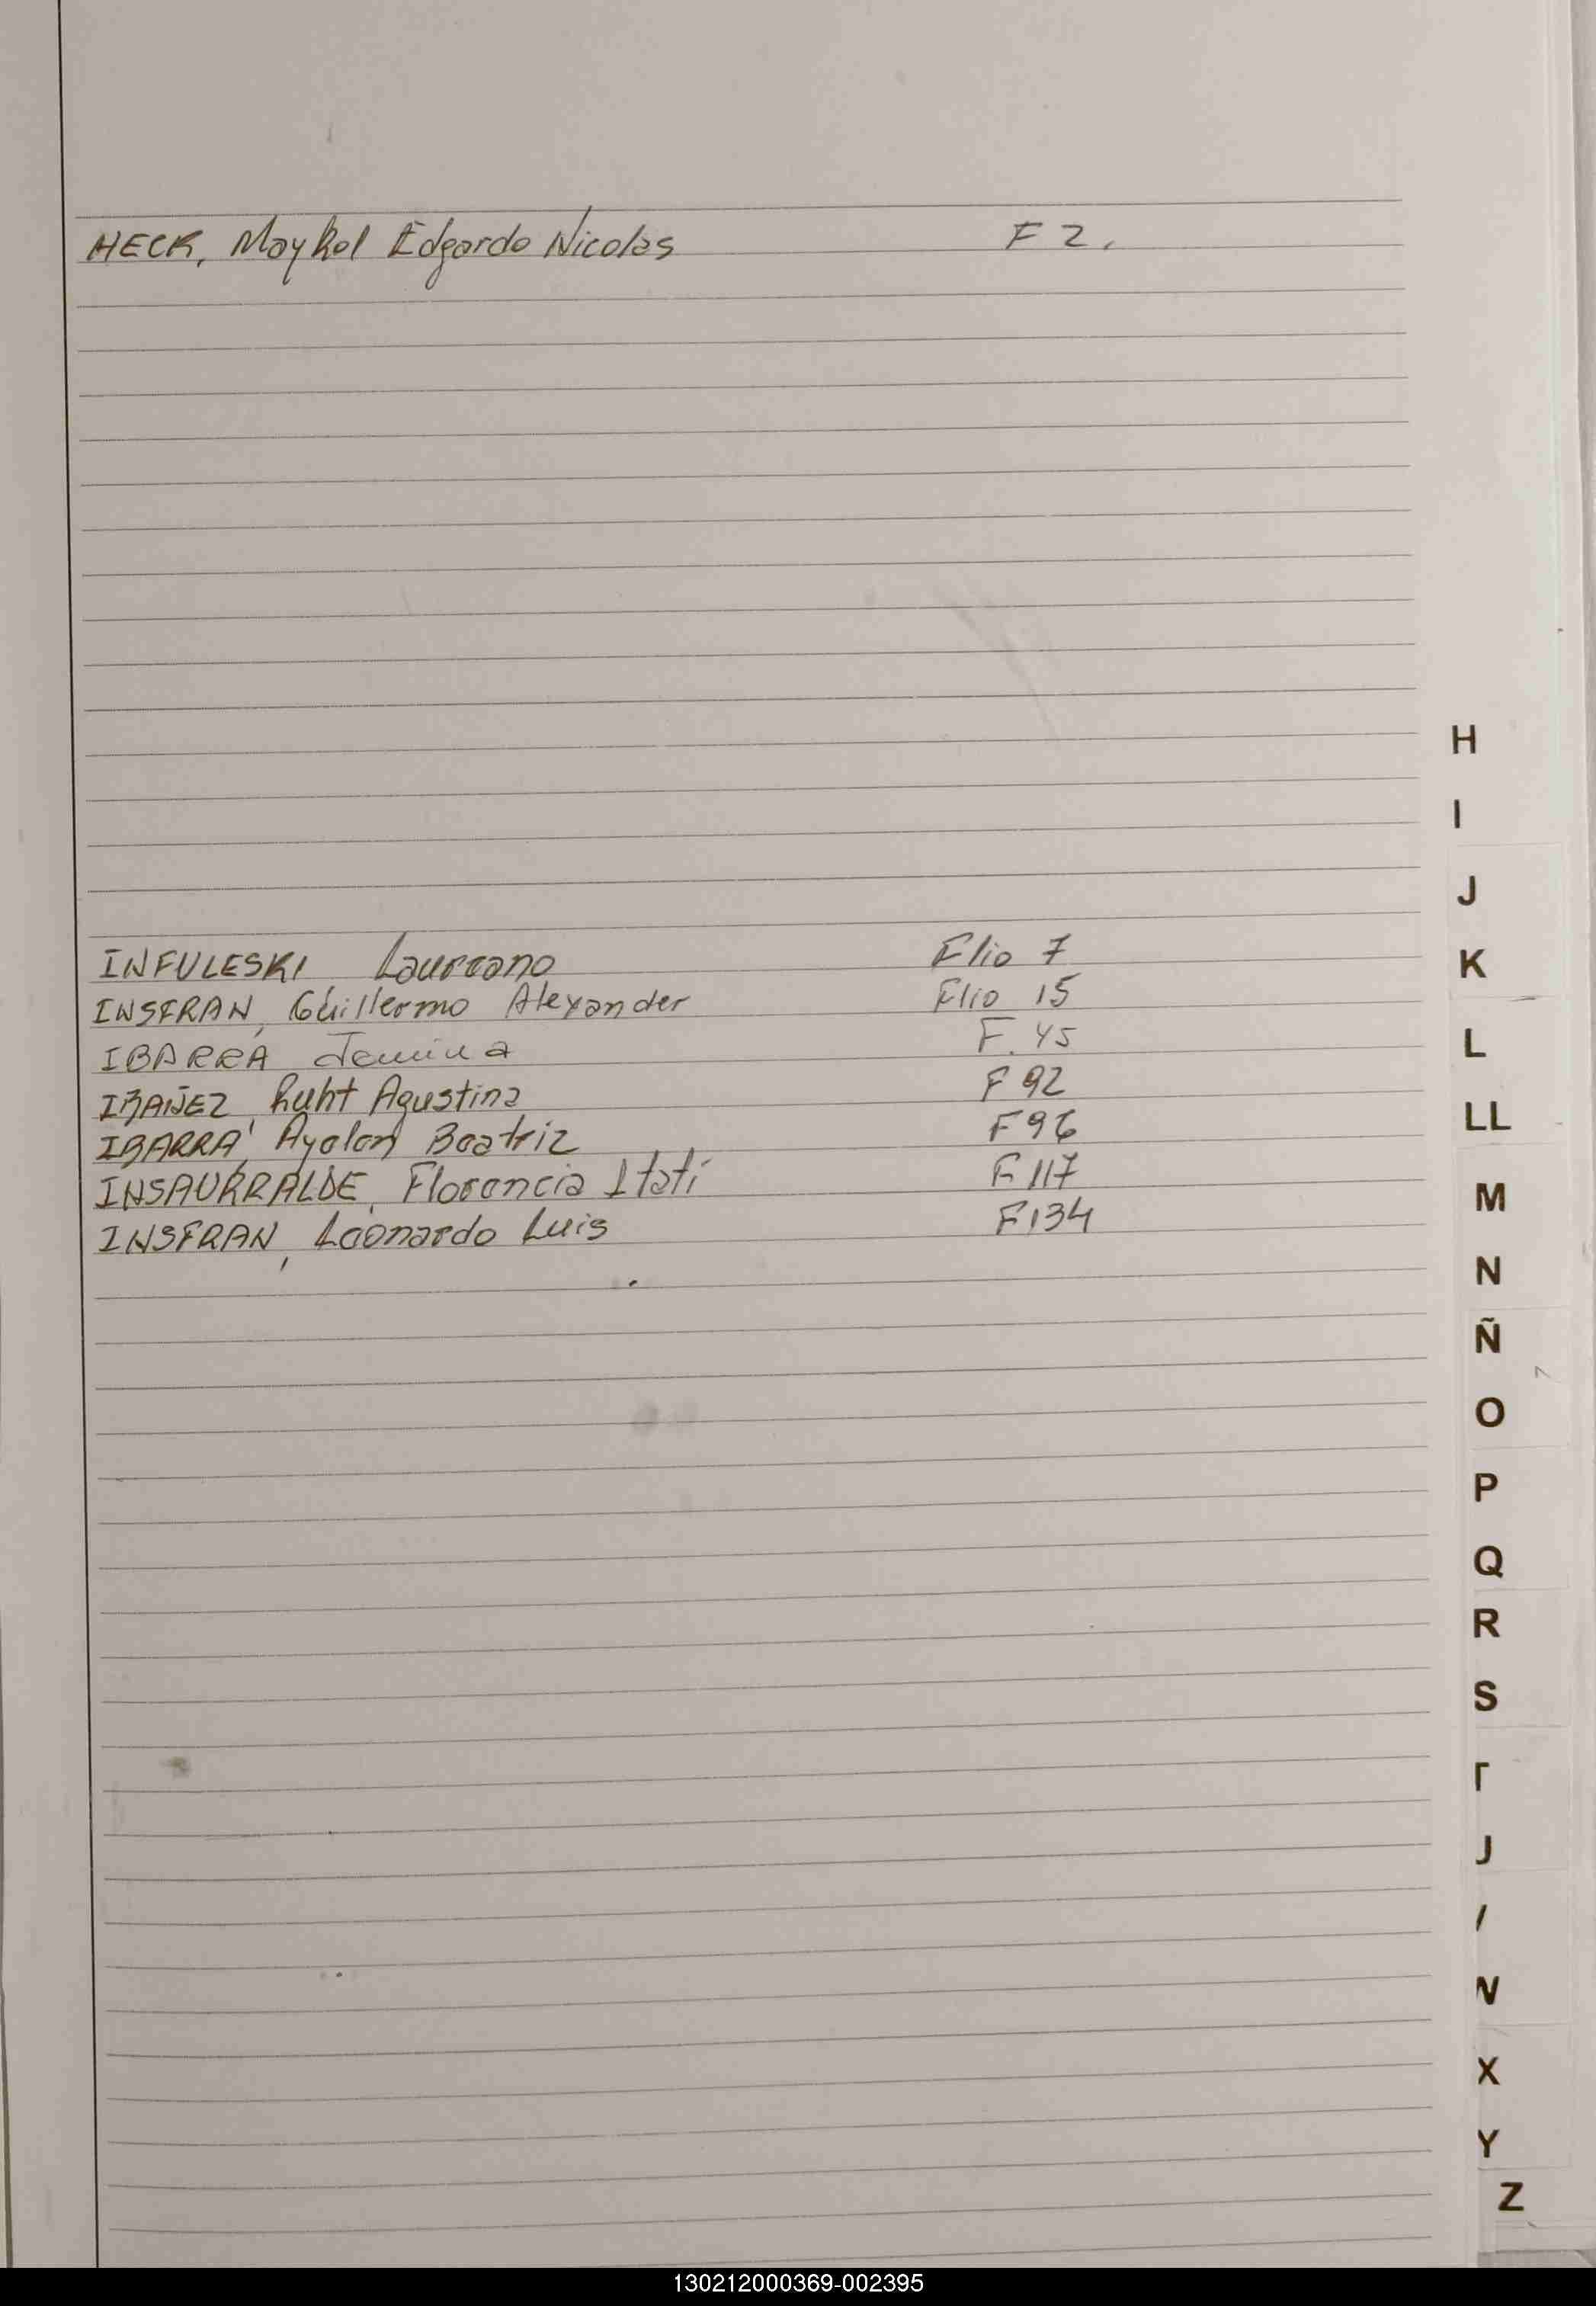 HECK, Maykol Edgardo Nicolas F 2.
H
I
J
INFULESKI Laureano Flio 7
K
INSFRAN, Guillermo Alexander Flio 15
IBARRA Jemina F. 45
L
IBAÑEZ, Ruht Agustina F 92
IBARRA, Ayelen Beatriz F 96
LL
INSAURRALDE, Florencia Itatí F 117
M
INSFRAN, Leonardo Luis F 134
N
Ñ
O
P
Q
R
S
T
U
V
W
X
Y
Z
130212000369-002395